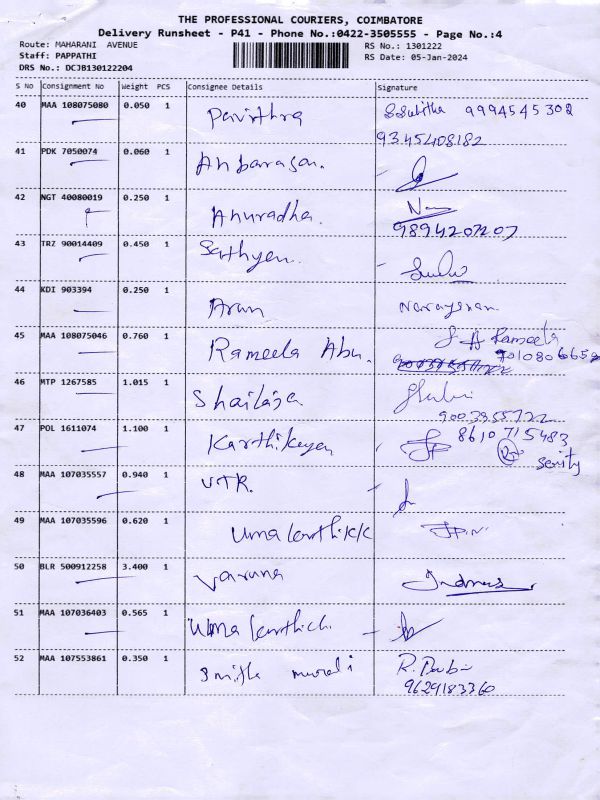 THE PROFESSIONAL COURIERS, COIMBATORE
Delivery Runsheet - P41 - Phone No.:0422-3505555 - Page No.:4
Route: MAHARANI AVENUE RS No.: 1301222
Staff: PAPPATHI RS Date: 05-Jan-2024
DRS No.: DCJB130122204
S No Consignment No Weight PCS Consignee Details Signature
40 MAA 108075080 0.050 1 Pavithra S.Subitha 9994545302
9345408182
41 PDK 7050074 0.060 1 Anbarasan.
42 NGT 40080019 0.250 1 Anuradha.
9894207207
43 TRZ 90014409 0.450 1 Sathyen.
44 KDI 903394 0.250 1 Arun Narayanan
45 MAA 108075046 0.760 1 Rameela Abu. Rameela
46 MTP 1267585 1.015 1 Shailaja
9003955722
47 POL 1611074 1.100 1 Karthikeyen 8610715483
48 MAA 107035557 0.940 1 VTR.
49 MAA 107035596 0.620 1 Uma
50 BLR 500912258 3.400 1 Varuna
51 MAA 107036403 0.565 1 Uma
52 MAA 107553861 0.350 1 Smitha murali
9629183360